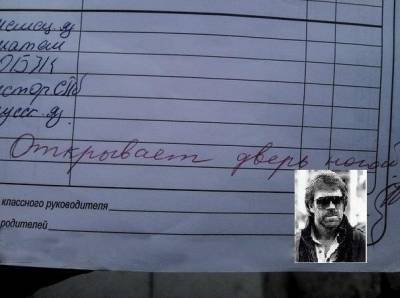 немец. яз
матем
ОБЖ
истор СПб
русс. яз.
Открывает дверь ногой
классного руководителя
родителей